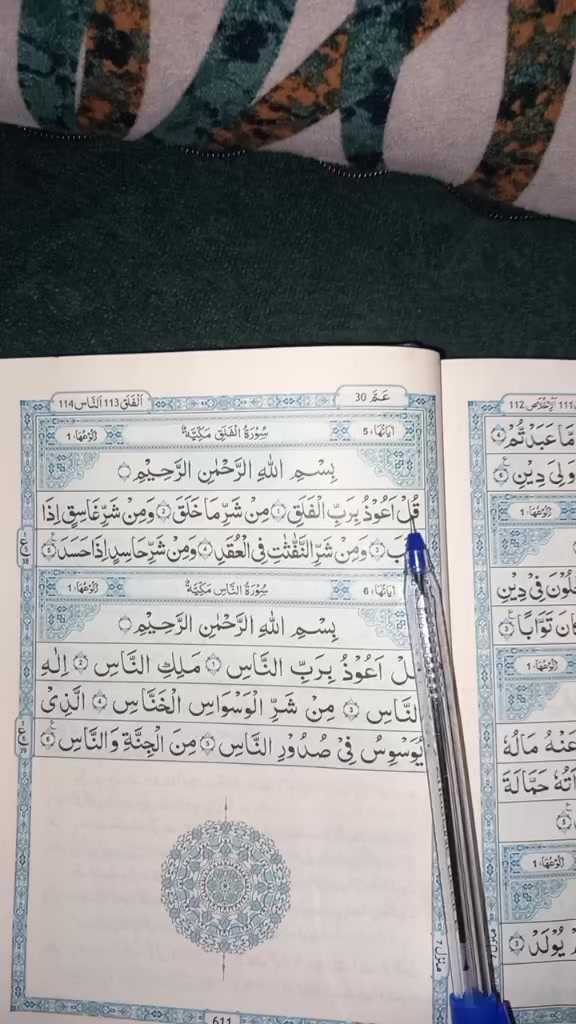 اَلْفَلَق 113 اَلنَّاس 114
عَمَّ 30
اٰيَاتُهَا، 5 سُوْرَةُ الْفَلَقِ مَكِّيَّةٌ رُكُوْعُهَا، 1
بِسْمِ اللّٰهِ الرَّحْمٰنِ الرَّحِيْمِ
قُلْ اَعُوْذُ بِرَبِّ الْفَلَقِ ۝1 مِنْ شَرِّ مَا خَلَقَ ۝2 وَمِنْ شَرِّ غَاسِقٍ اِذَا
بَ ۝3 وَمِنْ شَرِّ النَّفّٰثٰتِ فِى الْعُقَدِ ۝4 وَمِنْ شَرِّ حَاسِدٍ اِذَا حَسَدَ ۝5
اٰيَاتُهَا، 6 سُوْرَةُ النَّاسِ مَكِّيَّةٌ رُكُوْعُهَا، 1
بِسْمِ اللّٰهِ الرَّحْمٰنِ الرَّحِيْمِ
ـلْ اَعُوْذُ بِرَبِّ النَّاسِ ۝1 مَلِكِ النَّاسِ ۝2 اِلٰهِ
النَّاسِ ۝3 مِنْ شَرِّ الْوَسْوَاسِ الْخَنَّاسِ ۝4 الَّذِىْ
يُوَسْوِسُ فِىْ صُدُوْرِ النَّاسِ ۝5 مِنَ الْجِنَّةِ وَالنَّاسِ ۝6
ع
38
ع
39
منزل ٧
611
اَلْاِخْلَاص 112
مَا عَبَدْتُّمْ ۝4
وَلِىَ دِيْنِ ۝6
رُكُوْعُهَا، 1
لُوْنَ فِىْ دِيْنِ
كَانَ تَوَّابًا ۝3
رُكُوْعُهَا، 1
عَنْهُ مَالُهٗ
اَتُهٗ حَمَّالَةَ
۝5
رُكُوْعُهَا، 1
يُوْلَدْ ۝3